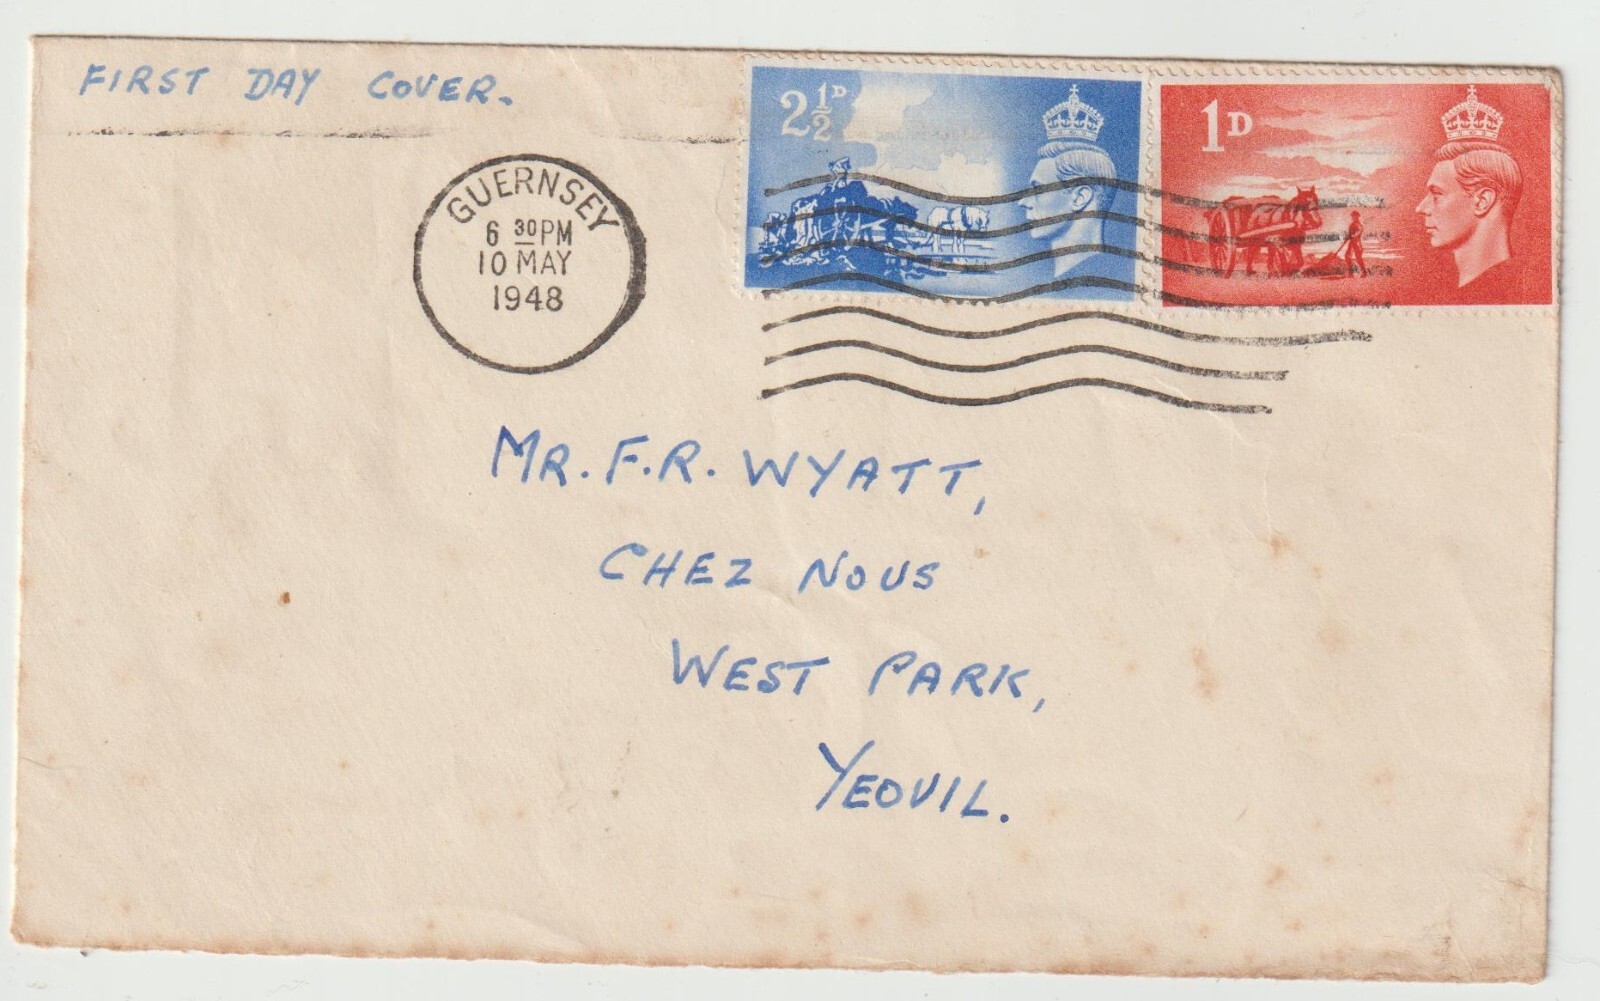 FIRST DAY COVER.
2½D
1D
GUERNSEY
6 30 PM
10 MAY
1948
MR. F.R. WYATT,
CHEZ NOUS
WEST PARK,
YEOVIL.